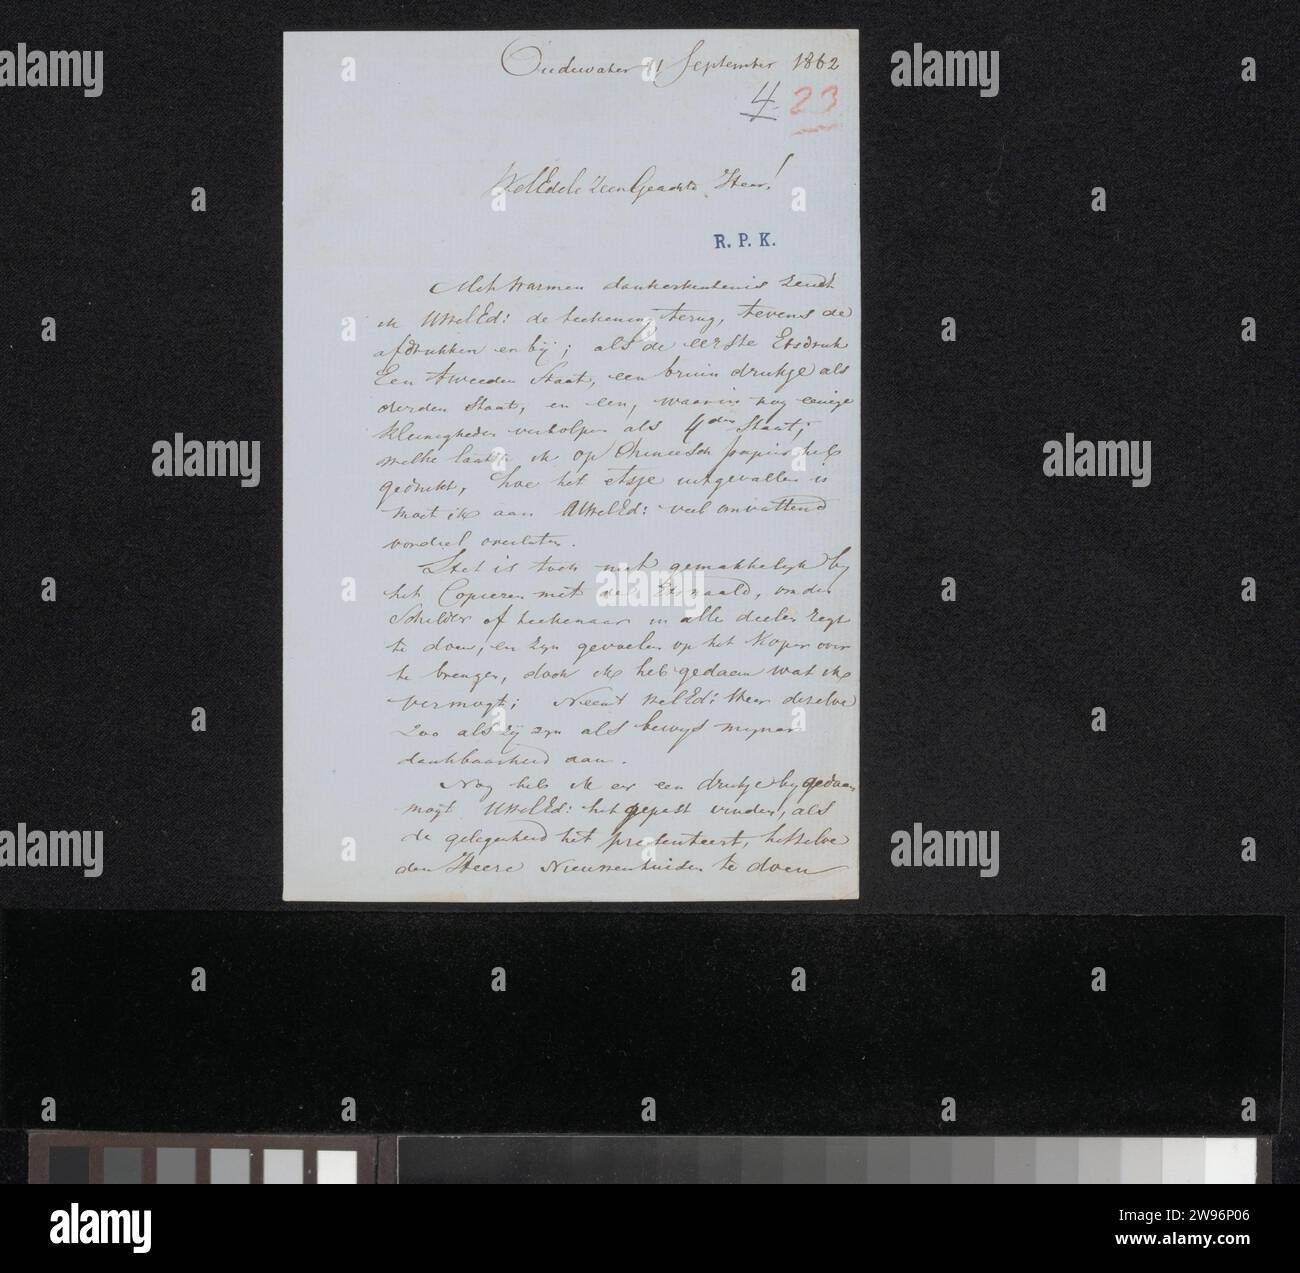 Oudewater 11 September 1862
4. 23
WelEdele ZeerGeachte Heer!
R. P. K.
Met warmen dankerkentenis zendt
ik UWelEd: de teekening terug, tevens de
afdrukken er bij; als de eerste Etsdruk
Een tweeden Staat, een bruin drukje als
derden Staat, en een, waarin nog eenige
kleinigheden verholpen als 4den Staat;
welke laatste ik op Chineesch papier heb
gedrukt, hoe het etsje uitgevallen is
moet ik aan UWelEd: veel omvattend
oordeel overlaten.
Het is toch niet gemakkelijk bij
het Copieren met de Etsnaald, om den
Schilder of teekenaar in alle deelen regt
te doen, en zijn gevoelen op het koper over
te brengen, doch ik heb gedaan wat ik
vermogt; Neemt WelEd: Heer dezelve
zoo als zij zijn als bewijs mijner
dankbaarheid aan.
Nog heb ik er een drukje bij gedaan
mogt UWelEd: het gepast vinden, als
de gelegenheid het presenteert, hetzelve
den Heere Nieuwenhuizen te doen
alamy
Image ID: 2W96P06
www.alamy.com